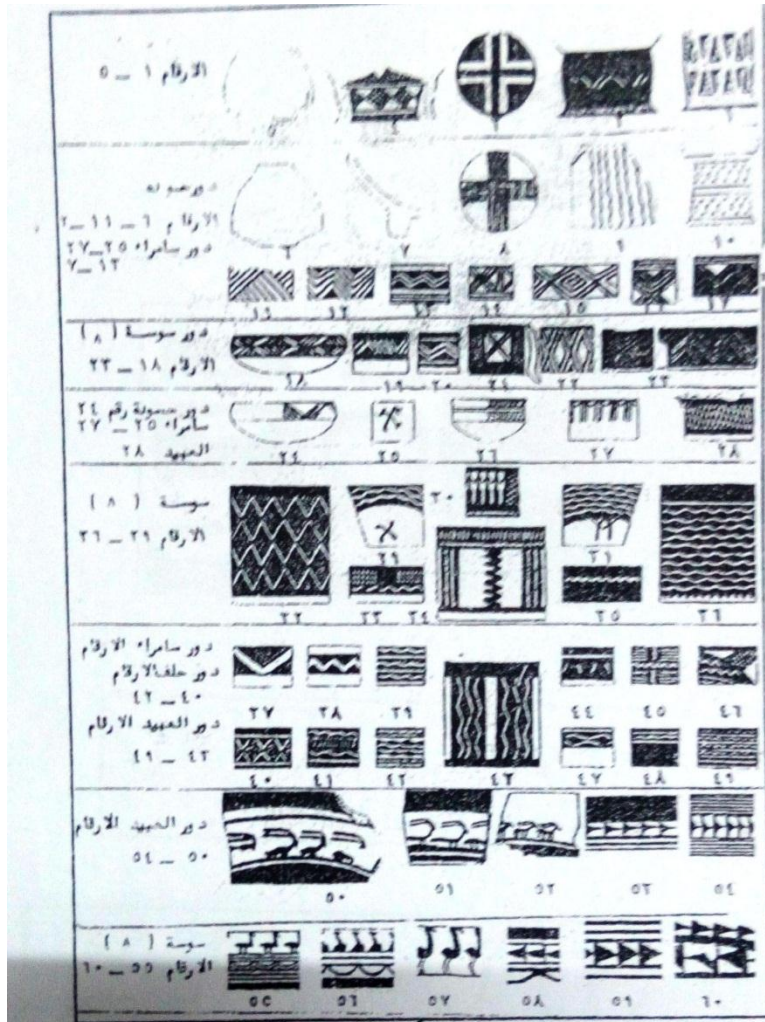 الارقام ١ — ٥
دور حسونه
الارقام ٦ — ١١ — ٢
دور سامراء ٢٥—٢٧
١٢—٧
٦ ٧ ٨ ٩ ١٠
١١ ١٢ ١٣ ١٤ ١٥ ١٦ ١٧
دور سوسة ( ٨ )
الارقام ١٨ — ٢٣
١٨ ١٩ — ٢٠ ٢١ ٢٢ ٢٣
دور حسونة رقم ٢٤
سامراء ٢٥ — ٢٧
العبيد ٢٨
٢٤ ٢٥ ٢٦ ٢٧ ٢٨
سوسة ( ٨ )
الارقام ٢٩ — ٣٦
٢٩ ٣٠ ٣١
٣٢ ٣٣ ٣٤ ٣٥ ٣٦
دور سامراء الارقام
دور حلف الارقام
٤٠ — ٤٢
دور العبيد الارقام
٤٣ — ٤٩
٣٧ ٣٨ ٣٩ ٤٤ ٤٥ ٤٦
٤٠ ٤١ ٤٢ ٤٣ ٤٧ ٤٨ ٤٩
دور العبيد الارقام
٥٠ — ٥٤
٥٠ ٥١ ٥٢ ٥٣ ٥٤
سوسة ( ٨ )
الارقام ٥٥ — ٦٠
٥٥ ٥٦ ٥٧ ٥٨ ٥٩ ٦٠